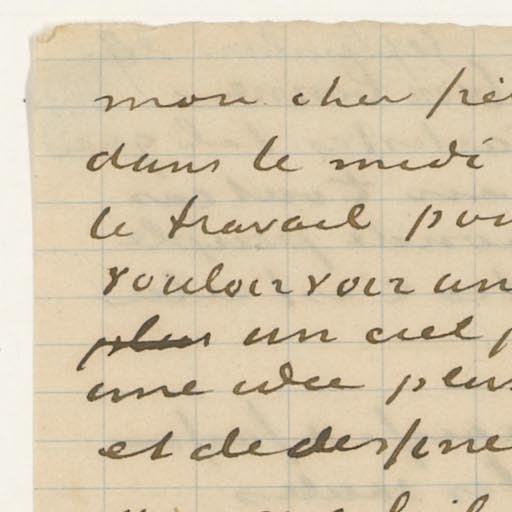 mon cher frè
dans le midi
le travail pou
vouloir voir un
plus un ciel p
une idée plus
et de dessine